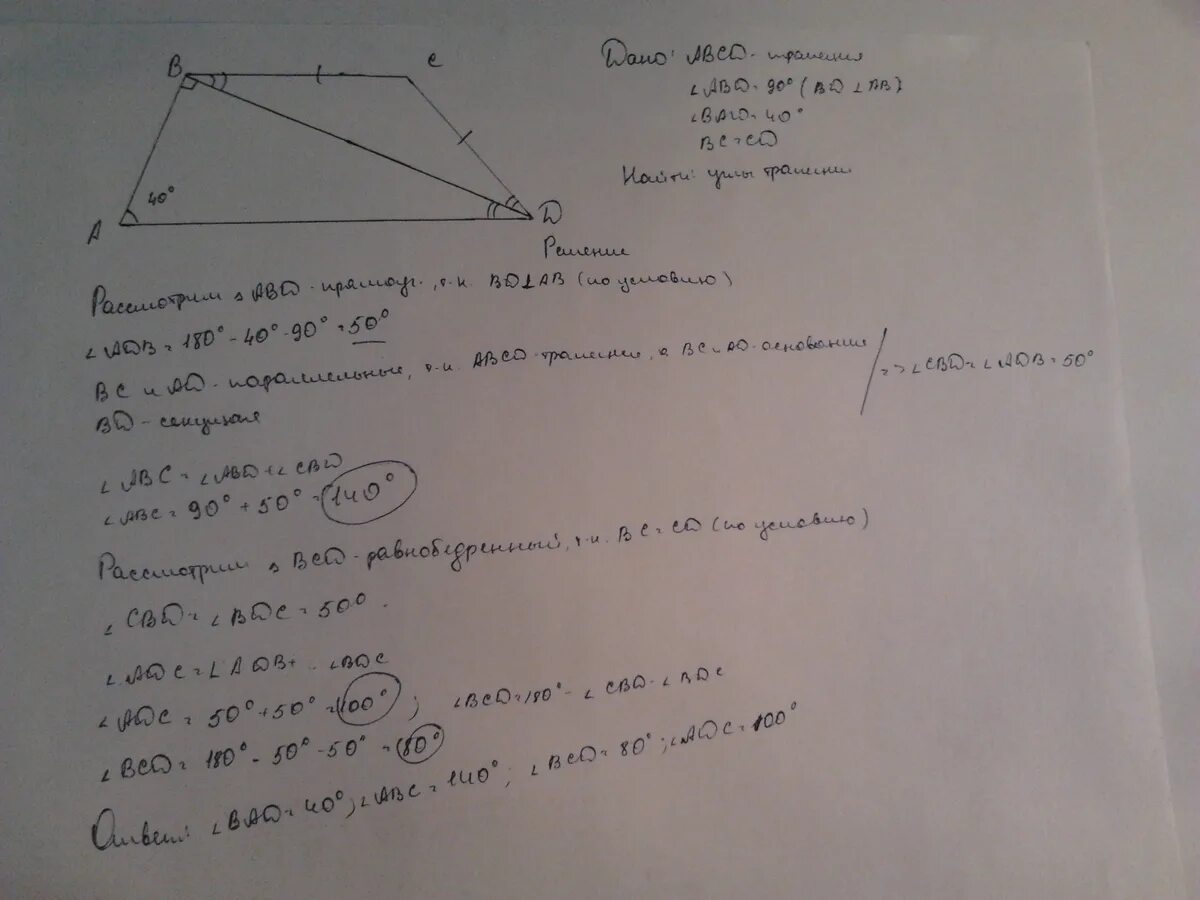 B
C
40°
A
D
Дано: ABCD - трапеция
∠ABD = 90° (BD ⊥ AB)
∠BAD = 40°
BC = CD
Найти: углы трапеции
Решение
Рассмотрим △ ABD - прямоуг., т.к. BD ⊥ AB (по условию)
∠ADB = 180° - 40° - 90° = 50°
BC и AD - параллельные, т.к. ABCD - трапеция, а BC и AD - основания
BD - секущая
=> ∠CBD = ∠ADB = 50°
∠ABC = ∠ABD + ∠CBD
∠ABC = 90° + 50° = 140°
Рассмотрим △ BCD - равнобедренный, т.к. BC = CD (по условию)
∠CBD = ∠BDC = 50°.
∠ADC = ∠ADB + ∠BDC
∠ADC = 50° + 50° = 100° ; ∠BCD = 180° - ∠CBD - ∠BDC
∠BCD = 180° - 50° - 50° = 80°
Ответ: ∠BAD = 40°; ∠ABC = 140°; ∠BCD = 80°; ∠ADC = 100°